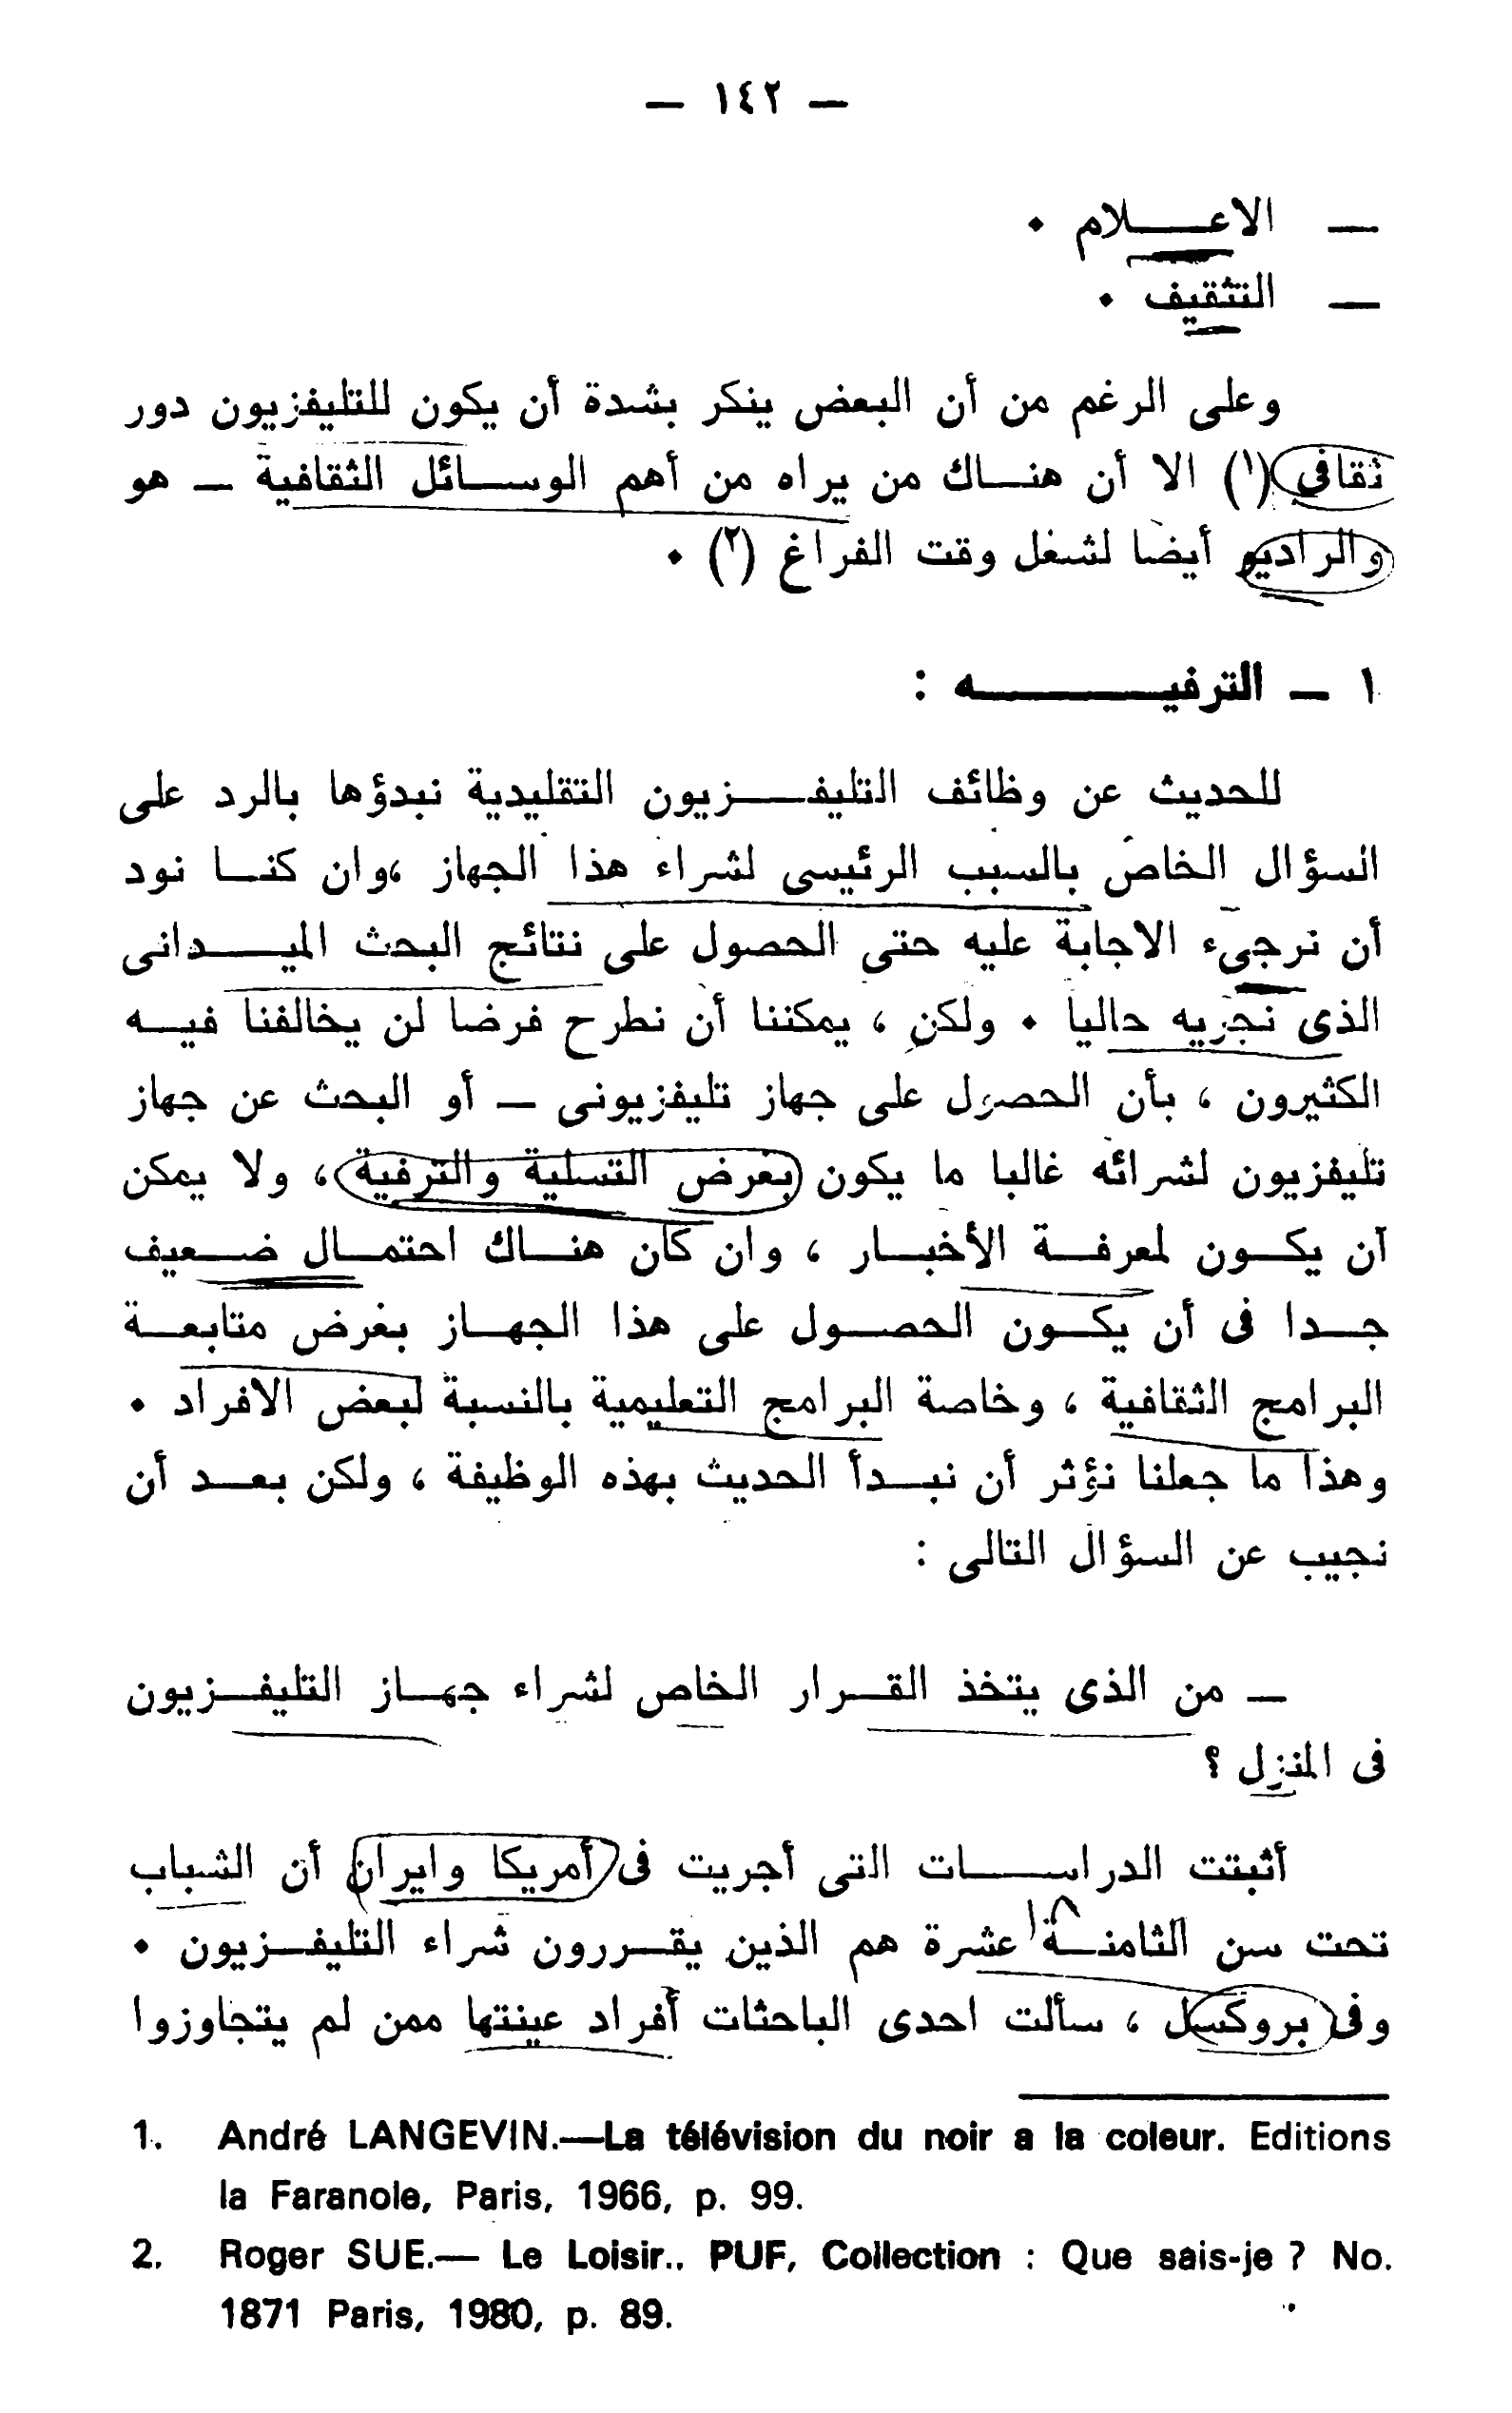 — ١٤٢ —
— الاعـــلام ٠
— التثقيف ٠
وعلى الرغم من أن البعض ينكر بشدة أن يكون للتليفزيون دور
ثقافي (١) الا أن هنـاك من يراه من أهم الوسـائل الثقافية — هو
والراديو أيضا لشغل وقت الفراغ (٢) ٠
١ — الترفيـــــه :
للحديث عن وظائف التليفـــزيون التقليدية نبدؤها بالرد على
السؤال الخاص بالسبب الرئيسى لشراء هذا الجهاز ،وان كنـا نود
أن نرجىء الاجابة عليه حتى الحصول على نتائج البحث الميـــدانى
الذى نجريه حاليا ٠ ولكن ، يمكننا أن نطرح فرضا لن يخالفنا فيـه
الكثيرون ، بأن الحصول على جهاز تليفزيونى — أو البحث عن جهاز
تليفزيون لشرائه غالبا ما يكون بغرض التسلية والترفية ، ولا يمكن
أن يكـون لمعرفـة الأخبـار ، وان كان هنـاك احتمـال ضـعيف
جـدا فى أن يكـون الحصـول على هذا الجهـاز بغرض متابعـة
البرامج الثقافية ، وخاصة البرامج التعليمية بالنسبة لبعض الافراد ٠
وهذا ما جعلنا نؤثر أن نبـدأ الحديث بهذه الوظيفة ، ولكن بعـد أن
نجيب عن السؤال التالى :
— من الذى يتخذ القـرار الخاص لشراء جهـاز التليفـزيون
فى المنزل ؟
أثبتت الدراســـات التى أجريت فى أمريكا وايران أن الشباب
تحت سن الثامنـة عشرة هم الذين يقـررون شراء التليفـزيون ٠
وفى بروكسل ، سألت احدى الباحثات أفراد عينتها ممن لم يتجاوزوا
1. André LANGEVIN.—La télévision du noir a la coleur. Editions
la Faranole, Paris, 1966, p. 99.
2. Roger SUE.— Le Loisir.. PUF, Collection : Que sais-je ? No.
1871 Paris, 1980, p. 89.